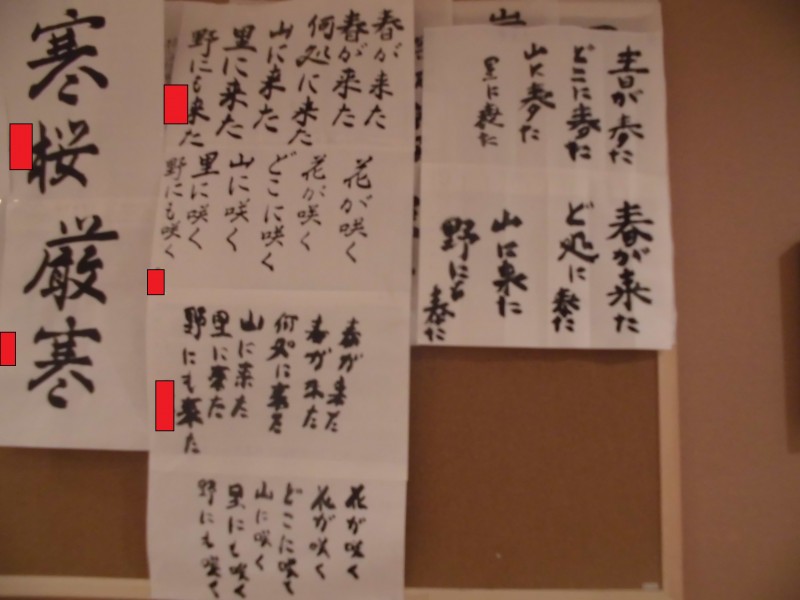 春が来た
どこに来た
山に来た
里に来た
春が来た
ど処に来た
山に来た
野にも来た
春が来た
春が来た
何処に来た
山に来た
里に来た
野にも来た
花が咲く
花が咲く
どこに咲く
山に咲く
里に咲く
野にも咲く
春が来た
春が来た
何処に来た
山に来た
里に来た
野にも来た
花が咲く
花が咲く
どこに咲く
山に咲く
里にも咲く
野にも咲く
寒桜
厳寒